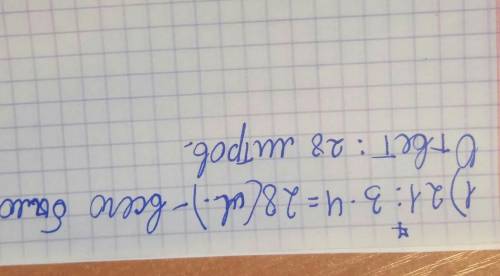 1) 21 : 3 · 4 = 28 (л.) - всего было
Ответ: 28 литров.